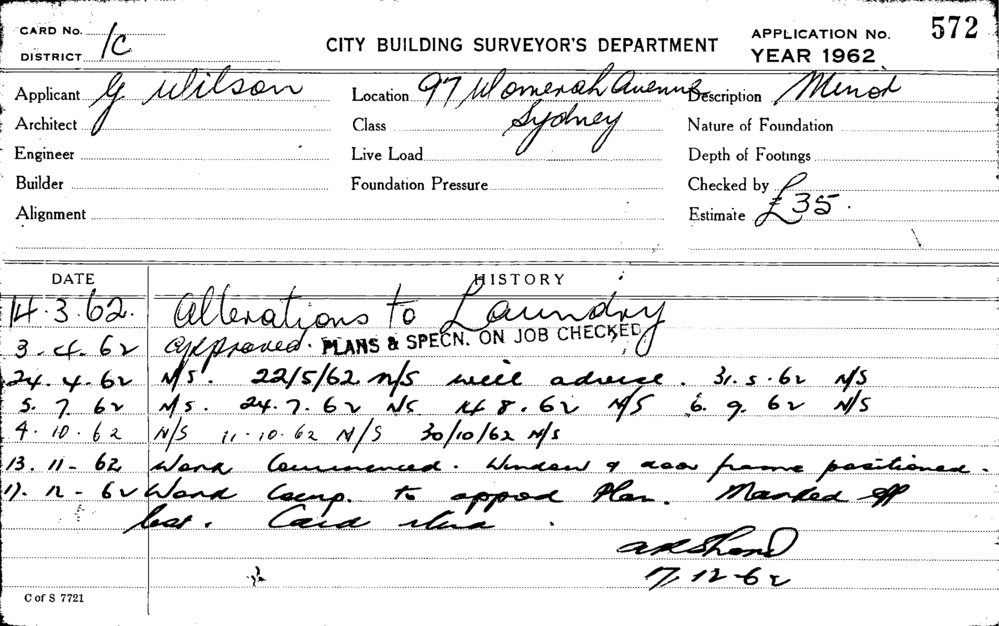 CARD No.
DISTRICT 1C
CITY BUILDING SURVEYOR'S DEPARTMENT
APPLICATION No. 572
YEAR 1962
Applicant G Wilson
Location 97 Womerah Avenue
Description Minor
Architect
Class Sydney
Nature of Foundation
Engineer
Live Load
Depth of Footings
Builder
Foundation Pressure
Checked by
Alignment
Estimate £35.
DATE HISTORY
14.3.62. Alterations to Laundry
3.4.62 Approved. PLANS & SPECN. ON JOB CHECKED
24.4.62 N/S. 22/5/62 N/S will advise. 31.5.62 N/S
5.7.62 N/S. 24.7.62 N/S 14 8.62 N/S 6.9.62 N/S
4.10.62 N/S 11.10.62 N/S 30/10/62 N/S
13.11-62 Work Commenced. Window & door frame positioned.
17.12-62 Work Comp. to approd Plan. Marked off
list. Card
7.12-62
C of S 7721